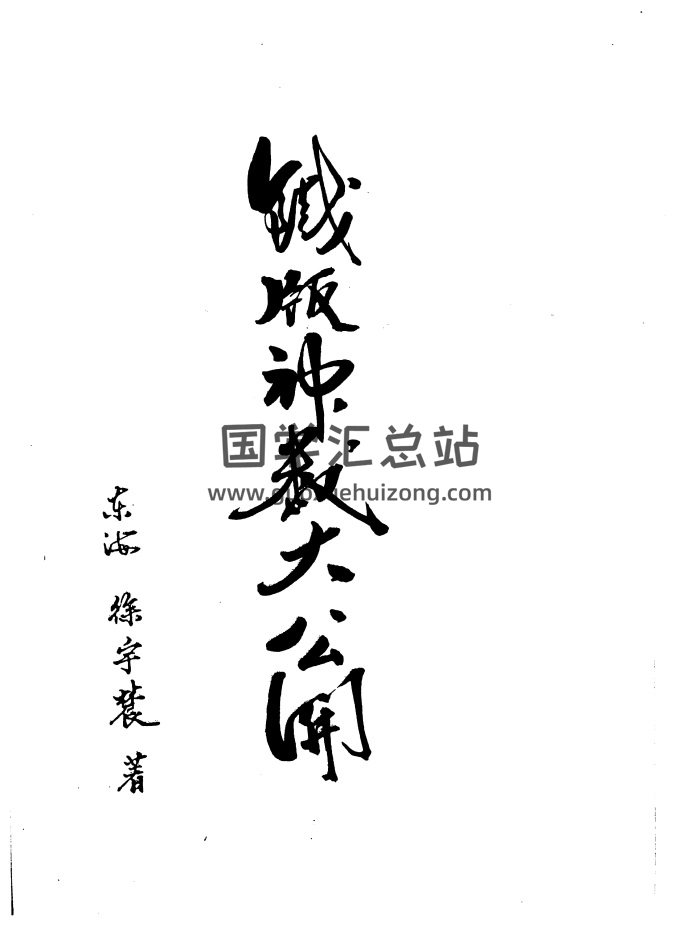 鐵版神數大公開
东海 徐宇辳 著
国学汇总站
www.guoxuehuizong.com